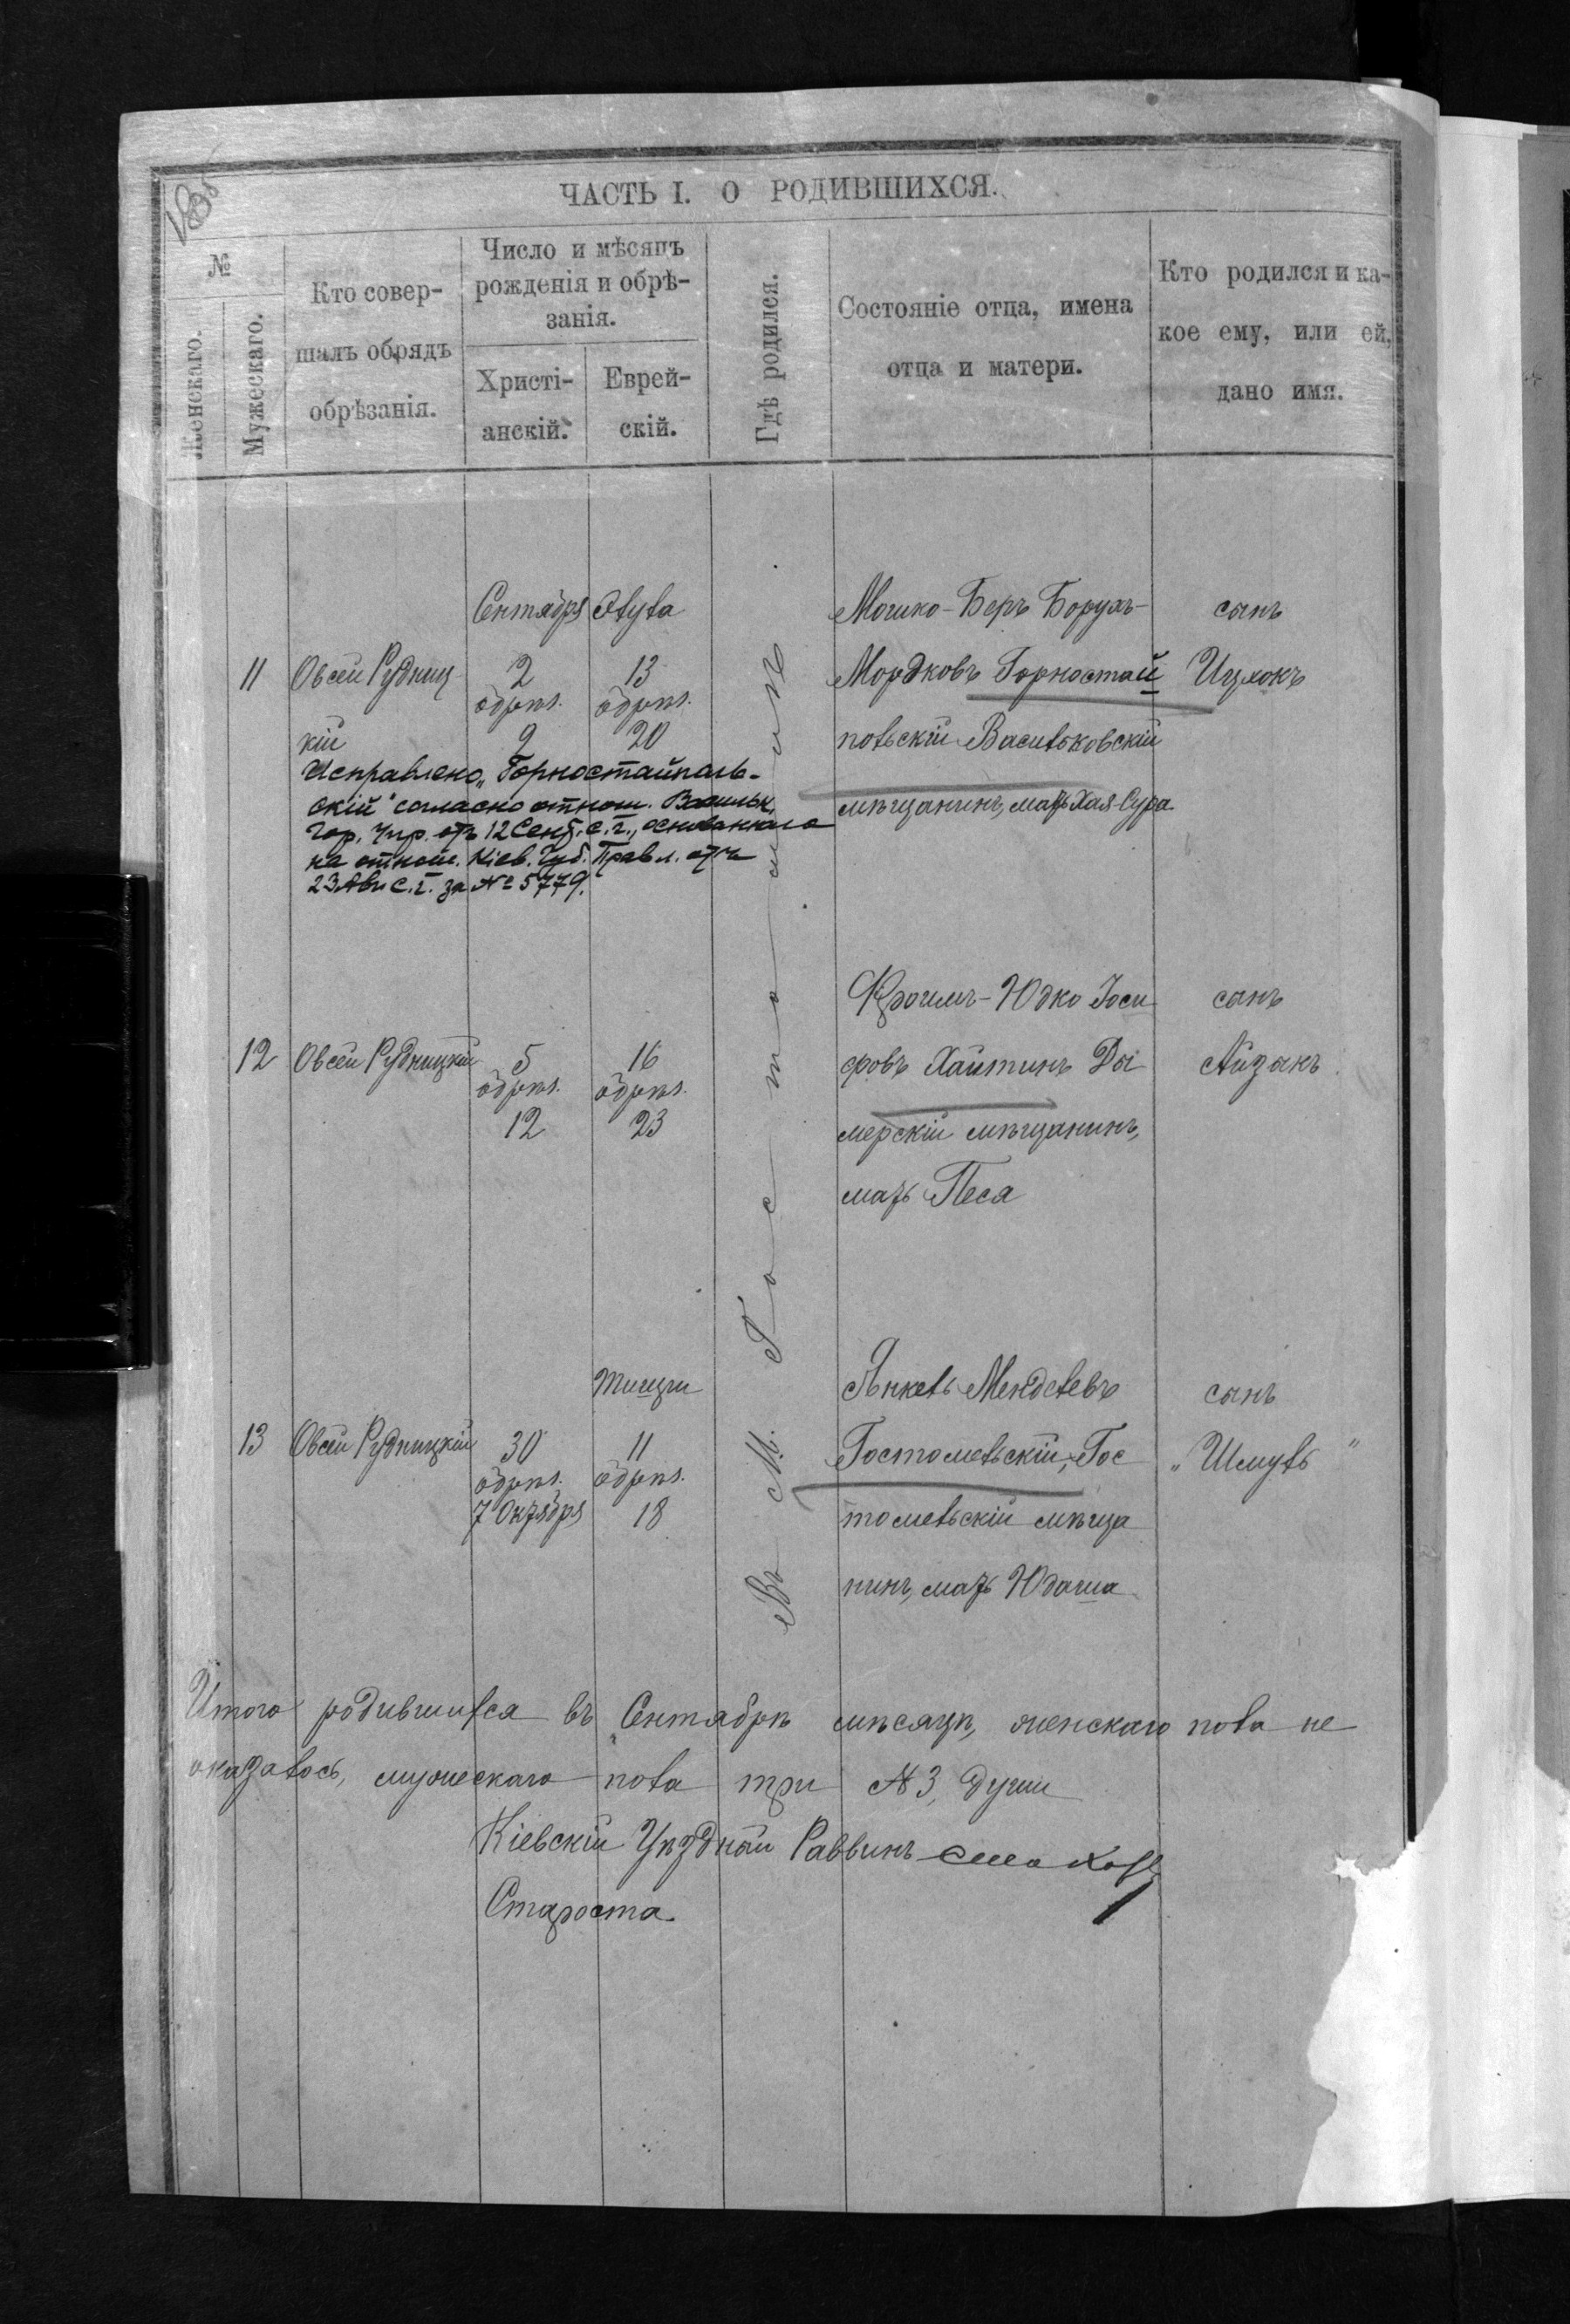 ЧАСТЬ I. О РОДИВШИХСЯ.
№
Женскаго.
Мужескаго.
Кто совер-
шалъ обрядъ
обрѣзанія.
Число и мѣсяцъ
рожденія и обрѣ-
занія.
Христі-
анскій.
Еврей-
скій.
Гдѣ родился.
Состояніе отца, имена
отца и матери.
Кто родился и ка-
кое ему, или ей,
дано имя.
Сентября Элула
Мошко-Беръ Борухъ-
сынъ
11 Овсей Рудниц
2 13
Мордковъ Горностай
Ицхокъ
обрѣз. обрѣз.
кій
9 20
польскій Васильковскій
мѣщанинъ, мать Хая-Сура
Исправлено „Горностайполь-
скій" согласно отнош. Васильк.
Гор. Упр. отъ 12 Сент. с.г., основаннаго
на отнош. Кіев. Губ. Правл. отъ
23 Авг с.г. за № 5779.
Въ М. Гостомлѣ
Фроимъ-Юдко Іоси
сынъ
12 Овсей Рудницкій
5 16
фовъ Хайтинъ Ды
Айзакъ
обрѣз. обрѣз.
12 23
мерскій мѣщанинъ,
мать Песя
Тишри
Янкель Менделевъ
сынъ
13 Овсей Рудницкій
30 11
Гостомельскій, Гос
„Шмуль"
обрѣз. обрѣз.
7 Октября 18
томельскій мѣща
нинъ, мать Юдаша
Итого родившихся въ Сентябрѣ мѣсяцѣ, женскаго пола не
оказалось, мужескаго пола три № 3, души
Кіевскій Уѣздный Раввинъ
Староста